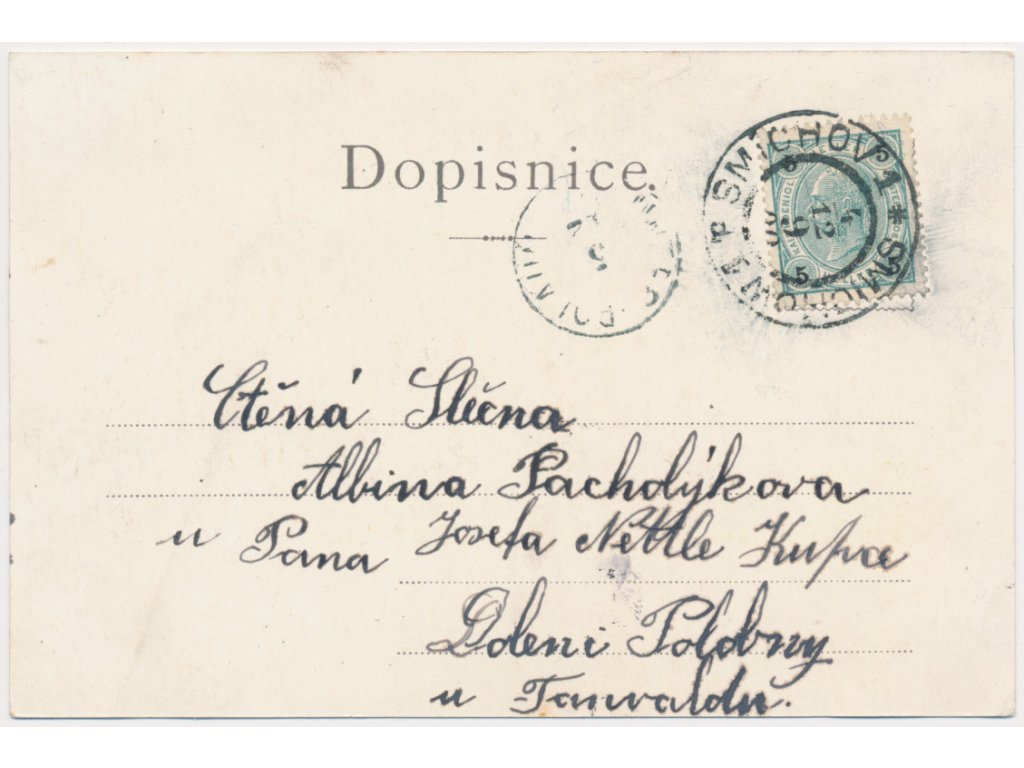 Dopisnice.
SMICHOV 1 * SMICHOW 1
4
12
5
5
POLAUN
Ctěná Slečna
Albina Pachdýkova
u Pana Josefa Nettle Kupce
Dolení Poldbny
u Tanvaldu.